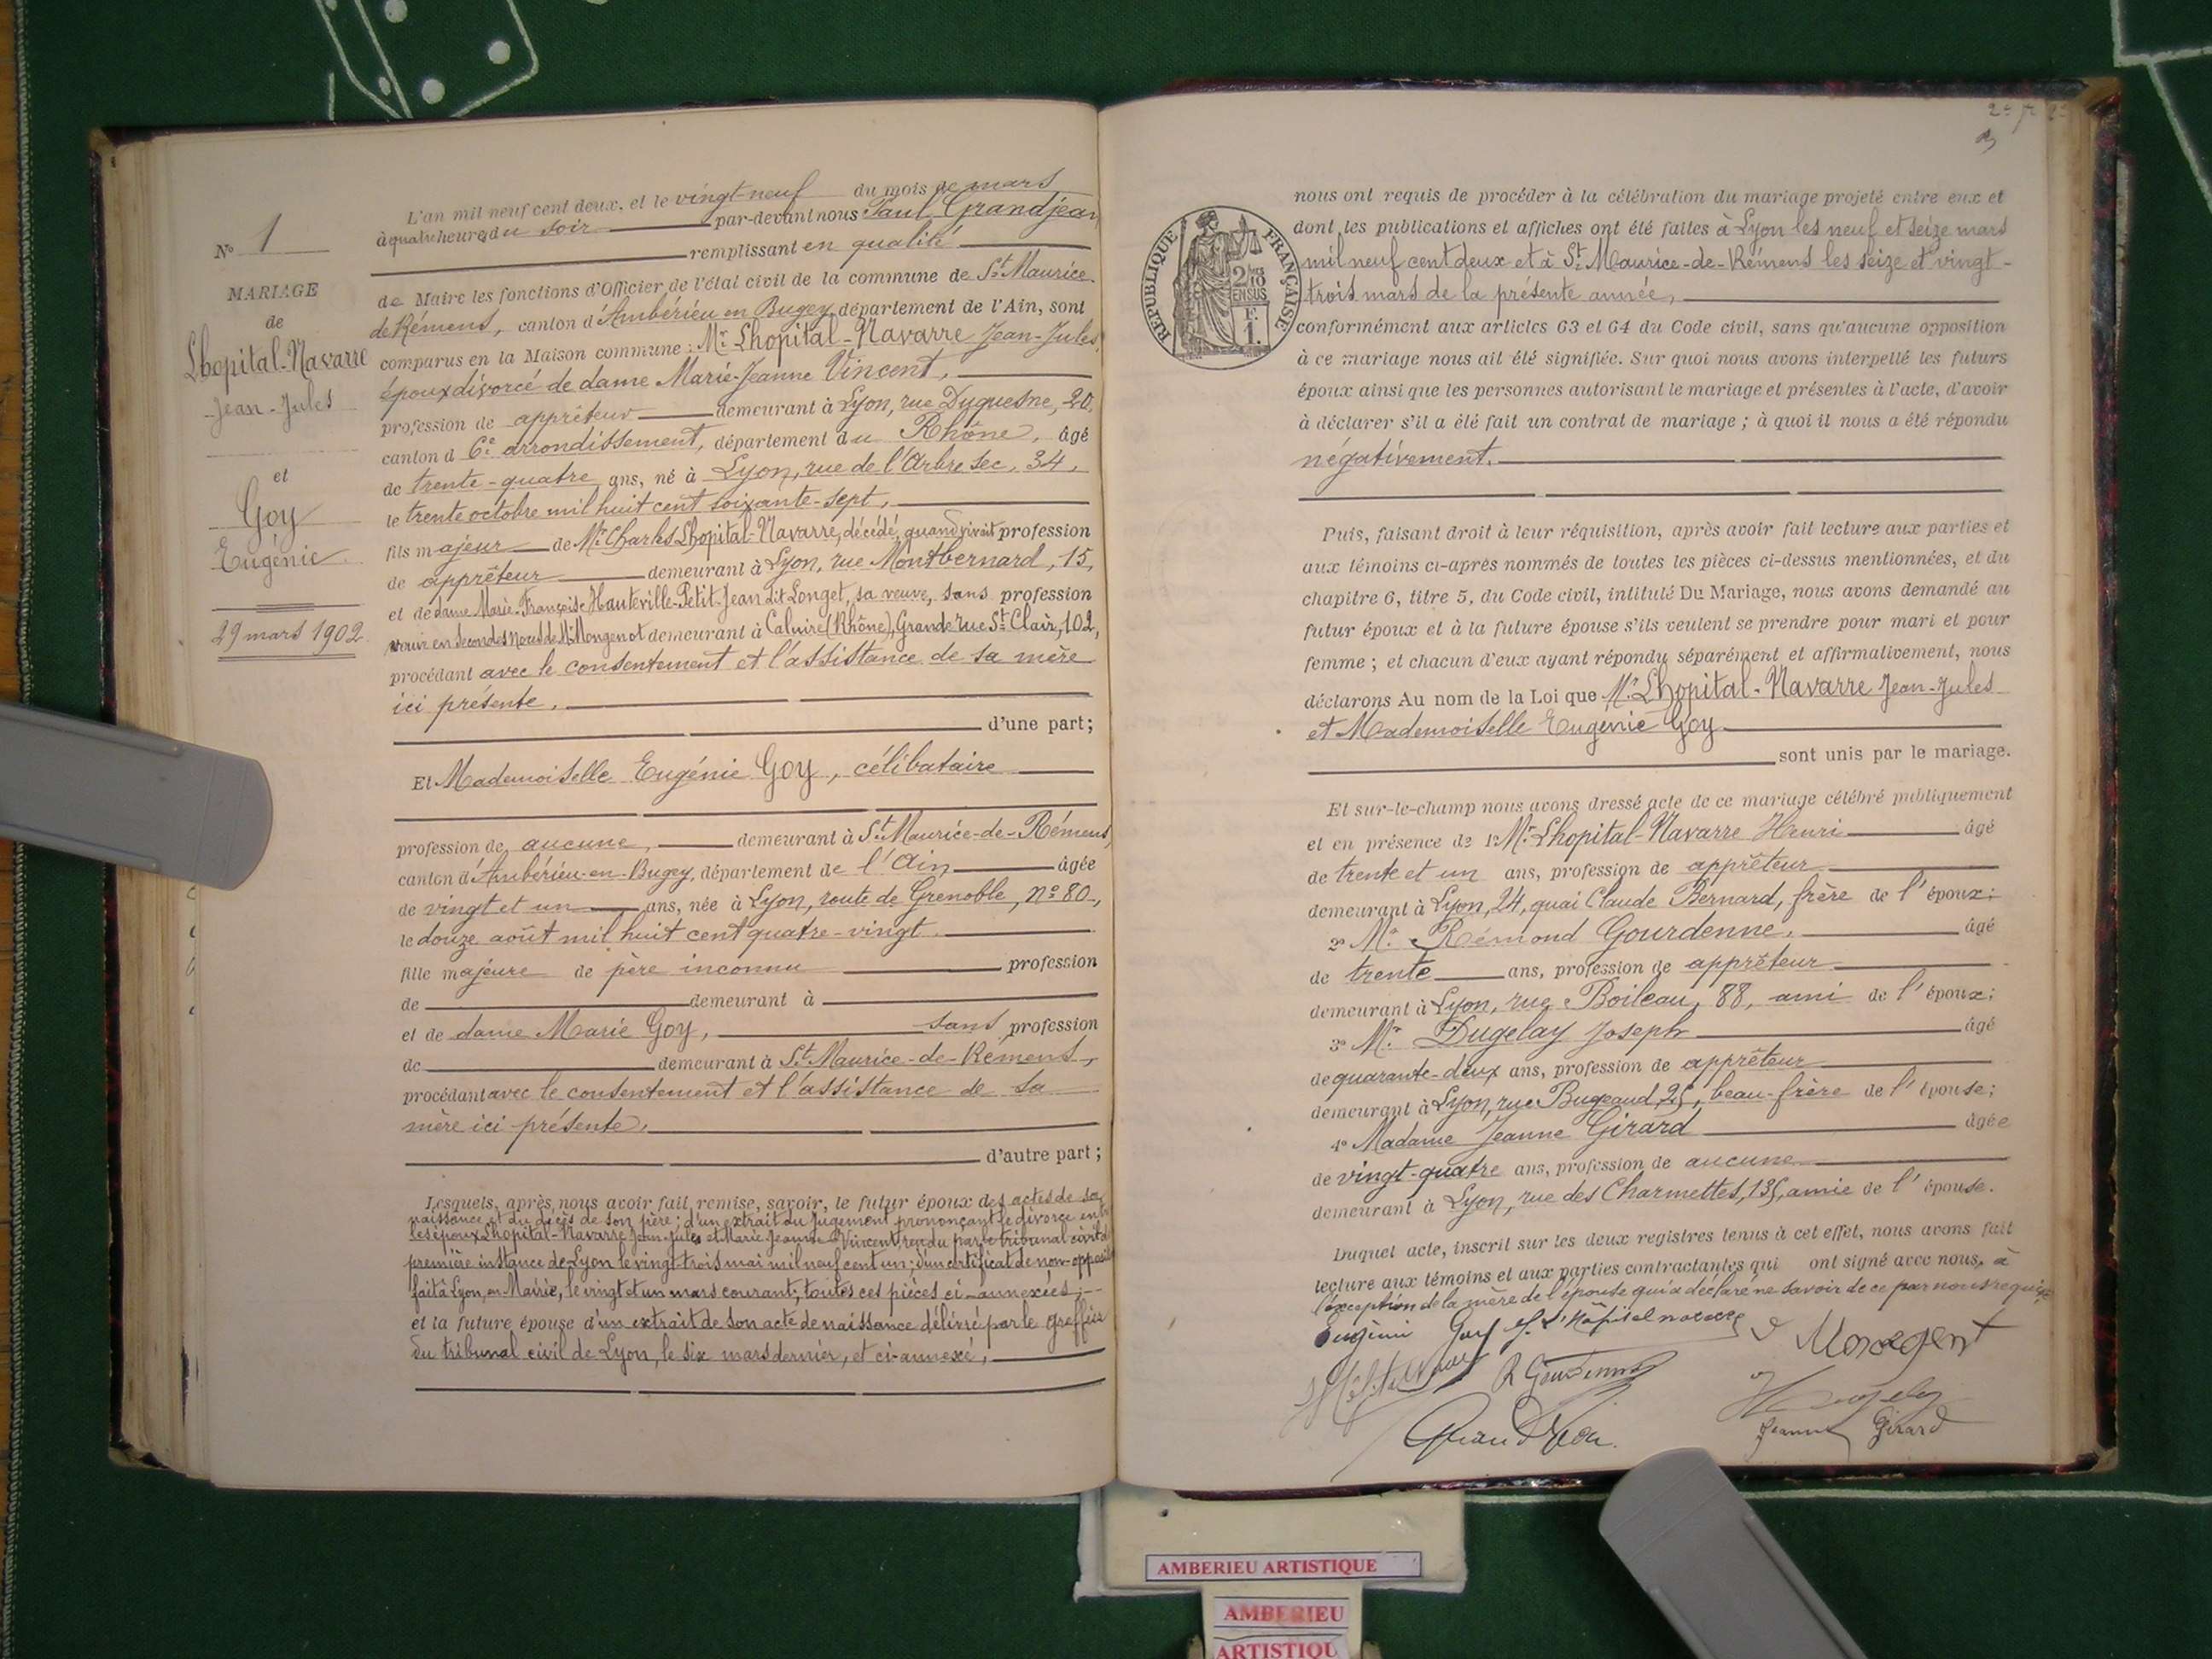 N° 1
MARIAGE
de
Lhopital-Navarre
Jean-Jules
et
Goy
Eugénie
29 mars 1902
L'an mil neuf cent deux, et le vingt-neuf du mois de mars
à quatre heures du soir par-devant nous Paul Grandjean
remplissant en qualité
de Maire les fonctions d'Officier de l'état civil de la commune de St Maurice-
de Rémens, canton d'Ambérieu en Bugey, département de l'Ain, sont
comparus en la Maison commune : Mr Lhopital-Navarre Jean-Jules,
époux divorcé de dame Marie-Jeanne Vincent,
profession de apprêteur demeurant à Lyon, rue Duquesne, 20,
canton d 6e arrondissement, département du Rhône, âgé
de trente-quatre ans, né à Lyon, rue de l'Arbre sec, 34,
le trente octobre mil huit cent soixante-sept,
fils majeur de Mr Charles Lhopital-Navarre, décédé, quand vivait profession
de apprêteur demeurant à Lyon, rue Montbernard, 15,
et de dame Marie-Françoise Hauteville-Petit-Jean dit Longet, sa veuve, sans profession
veuve en secondes noces de Mr Mongenot demeurant à Caluire (Rhône), Grande rue St Clair, 102,
procédant avec le consentement et l'assistance de sa mère
ici présente,
d'une part;
Et Mademoiselle Eugénie Goy, célibataire
profession de aucune, demeurant à St Maurice-de-Rémens,
canton d'Ambérieu-en-Bugey, département de l'Ain âgée
de vingt et un ans, née à Lyon, route de Grenoble, n° 80,
le douze août mil huit cent quatre-vingt
fille majeure de père inconnu profession
de demeurant à
et de dame Marie Goy, sans profession
de demeurant à St Maurice-de-Rémens,
procédant avec le consentement et l'assistance de sa
mère ici présente,
d'autre part;
Lesquels, après nous avoir fait remise, savoir, le futur époux des actes de sa
naissance et du décès de son père; d'un extrait du Jugement prononçant le divorce entre
les époux Lhopital-Navarre Jean-Jules et Marie Jeanne Vincent rendu par le tribunal civil de
première instance de Lyon le vingt-trois mai mil neuf cent un; d'un certificat de non-opposition
fait à Lyon, en Mairie, le vingt et un mars courant; toutes ces pièces ci-annexées;
et la future épouse d'un extrait de son acte de naissance délivré par le greffier
du tribunal civil de Lyon, le six mars dernier, et ci-annexé,
RÉPUBLIQUE FRANÇAISE
2/10 EN SUS
F.
1.
nous ont requis de procéder à la célébration du mariage projeté entre eux et
dont les publications et affiches ont été faites à Lyon les neuf et seize mars
mil neuf cent deux et à St Maurice-de-Rémens les seize et vingt-
trois mars de la présente année,
conformément aux articles 63 et 64 du Code civil, sans qu'aucune opposition
à ce mariage nous ait été signifiée. Sur quoi nous avons interpellé les futurs
époux ainsi que les personnes autorisant le mariage et présentes à l'acte, d'avoir
à déclarer s'il a été fait un contrat de mariage; à quoi il nous a été répondu
négativement.
Puis, faisant droit à leur réquisition, après avoir fait lecture aux parties et
aux témoins ci-après nommés de toutes les pièces ci-dessus mentionnées, et du
chapitre 6, titre 5, du Code civil, intitulé Du Mariage, nous avons demandé au
futur époux et à la future épouse s'ils veulent se prendre pour mari et pour
femme; et chacun d'eux ayant répondu séparément et affirmativement, nous
déclarons Au nom de la Loi que Mr Lhopital-Navarre Jean-Jules
et Mademoiselle Eugénie Goy
sont unis par le mariage.
Et sur-le-champ nous avons dressé acte de ce mariage célébré publiquement
et en présence de 1° Mr Lhopital-Navarre Henri âgé
de trente et un ans, profession de apprêteur
demeurant à Lyon, 24, quai Claude Bernard, frère de l'époux;
2° Mr Rémond Gourdenne, âgé
de trente ans, profession de apprêteur
demeurant à Lyon, rue Boileau, 88, ami de l'époux;
3° Mr Dugelay Joseph âgé
de quarante-deux ans, profession de apprêteur
demeurant à Lyon, rue Bugeaud, 25, beau-frère de l'épouse;
4° Madame Jeanne Girard âgée
de vingt-quatre ans, profession de aucune
demeurant à Lyon, rue des Charmettes, 135, amie de l'épouse.
Duquel acte, inscrit sur les deux registres tenus à cet effet, nous avons fait
lecture aux témoins et aux parties contractantes qui ont signé avec nous, à
l'exception de la mère de l'épouse qui a déclaré ne savoir de ce par nous requise
Eugénie Goy
R Gourdenne
Jeanne Girard
AMBERIEU ARTISTIQUE
AMBERIEU
ARTISTIQU